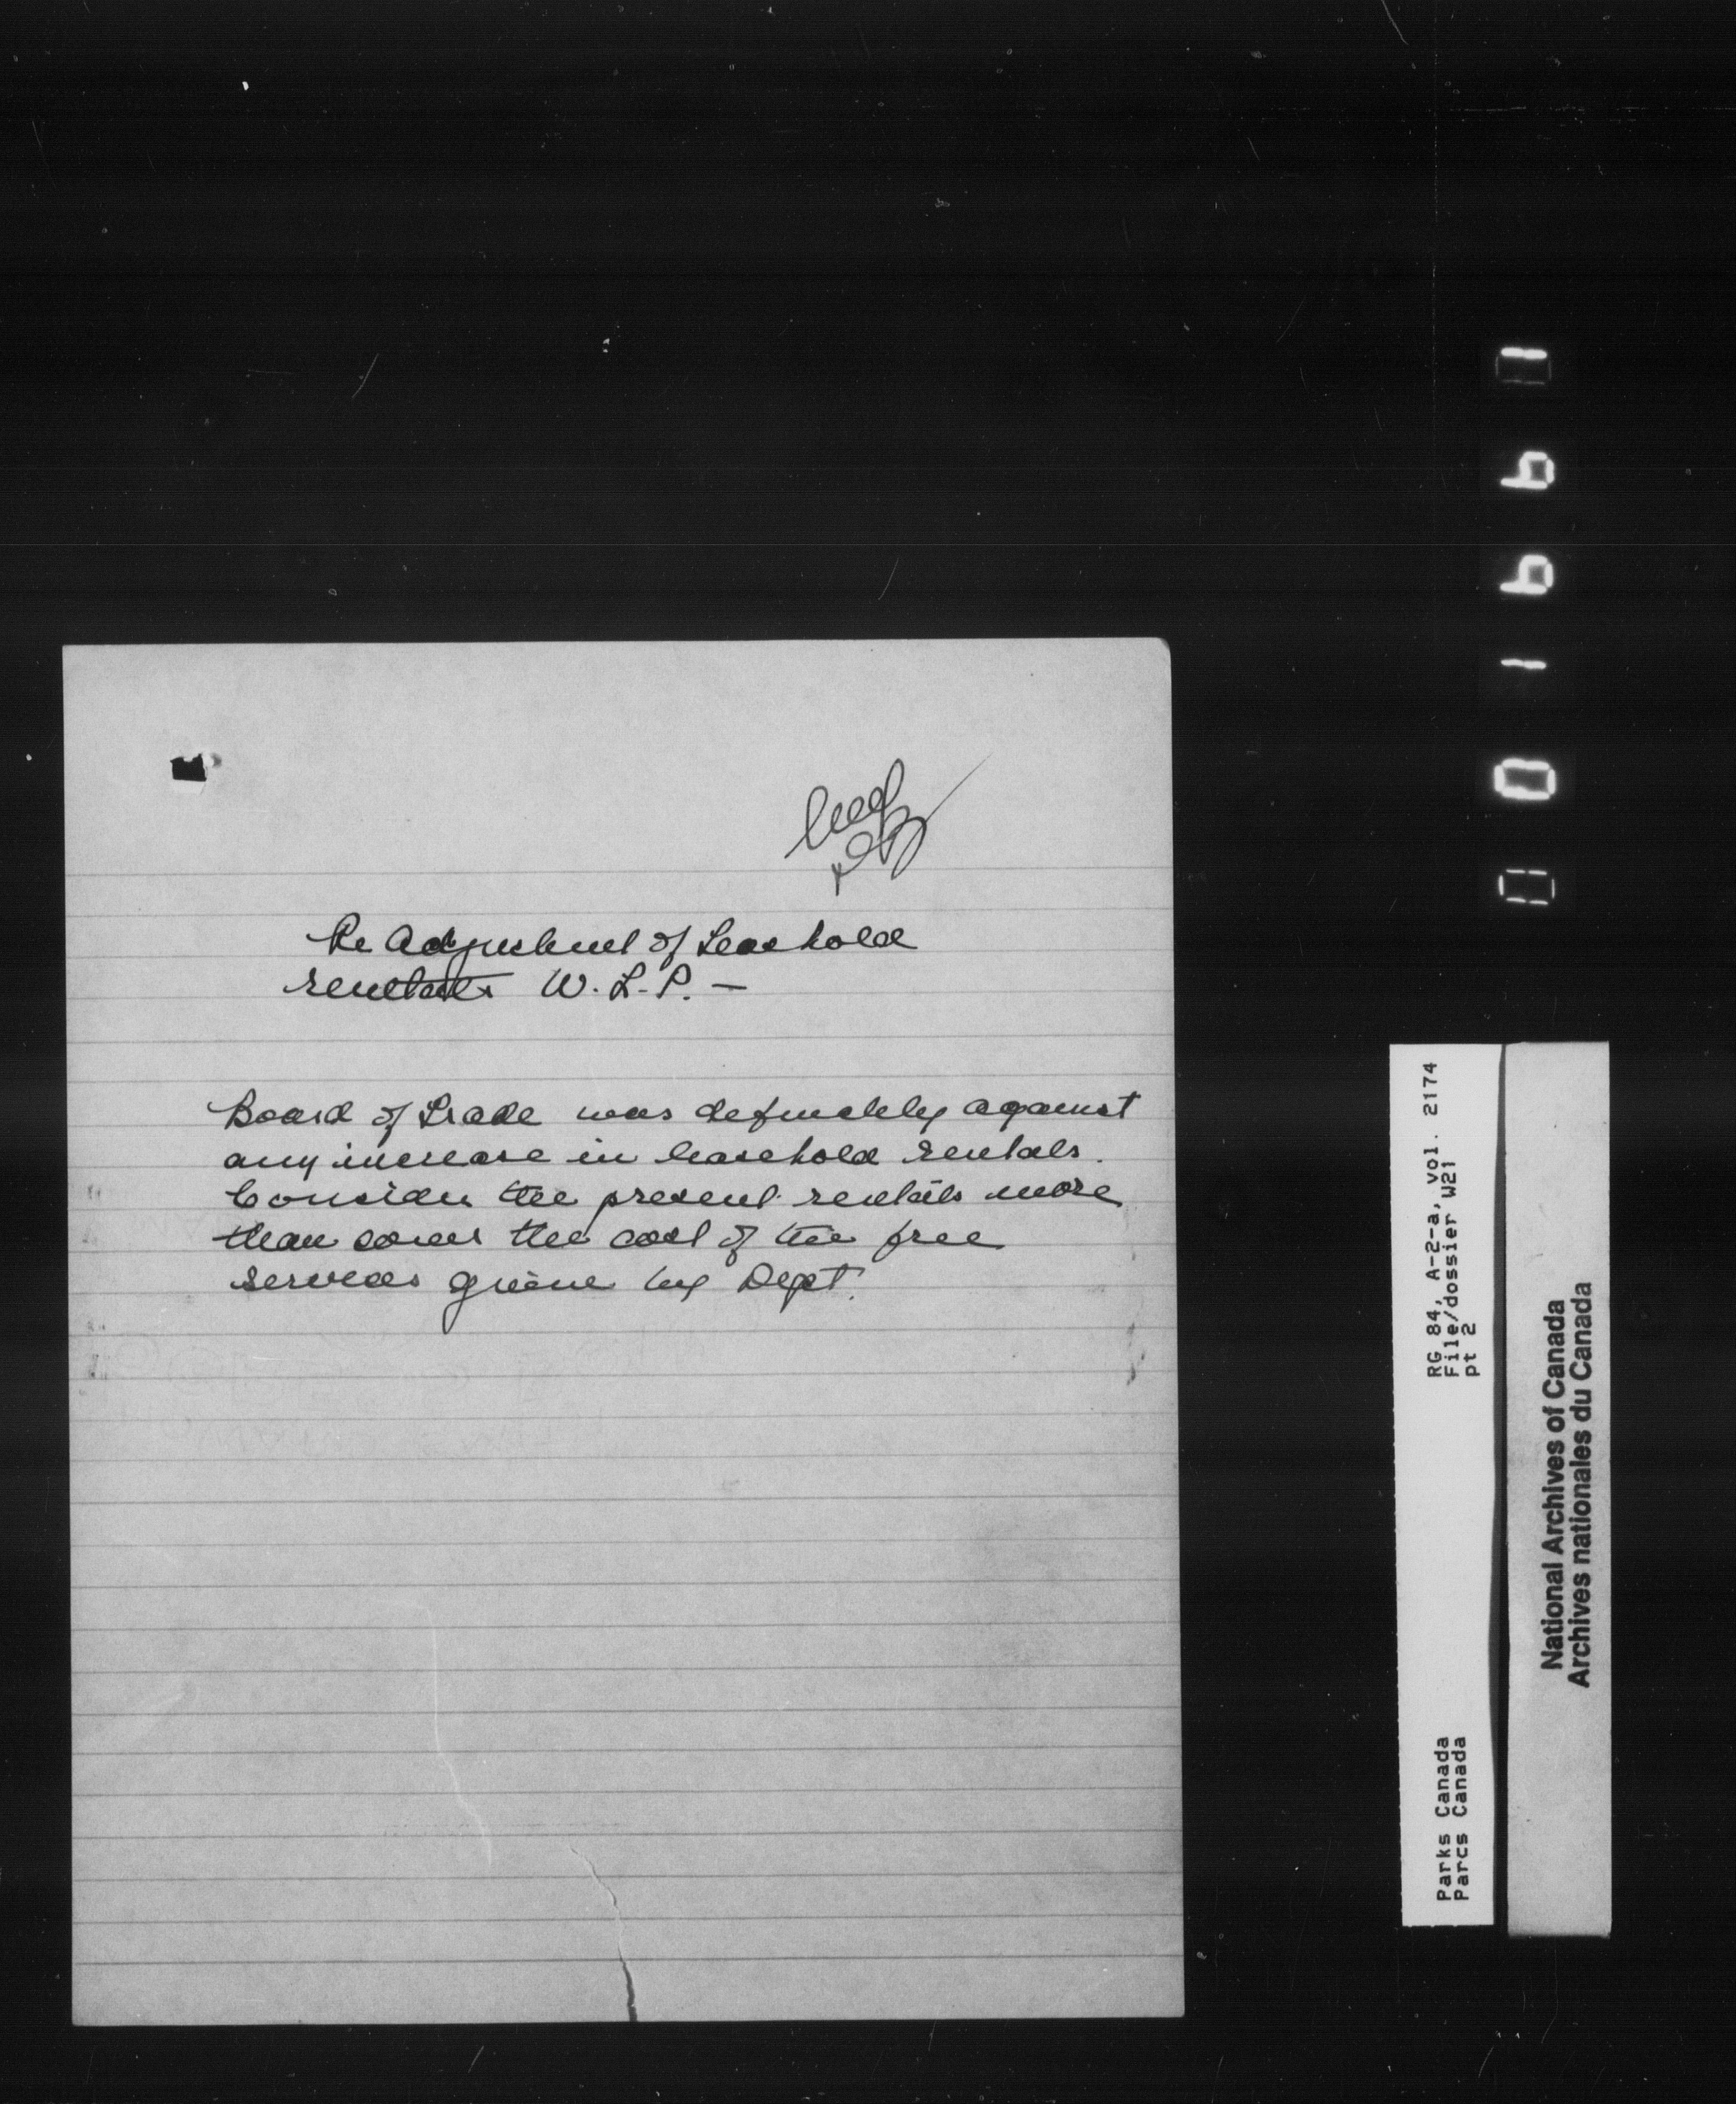 Re Adjustment of Leasehold
rentals W. L. P. —
Board of Trade was definitely against
any increase in leasehold rentals.
Consider the present rentals more
than cover the cost of the free
services given by Dept.
001661
RG 84, A-2-a, vol. 2174
File/dossier W21
pt 2
Parks Canada
Parcs Canada
National Archives of Canada
Archives nationales du Canada